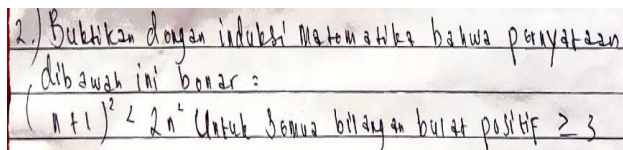 2.) Buktikan dengan induksi matematika bahwa pernyataan
dibawah ini benar :
(n+1)² < 2n² Untuk semua bilangan bulat positif ≥ 3